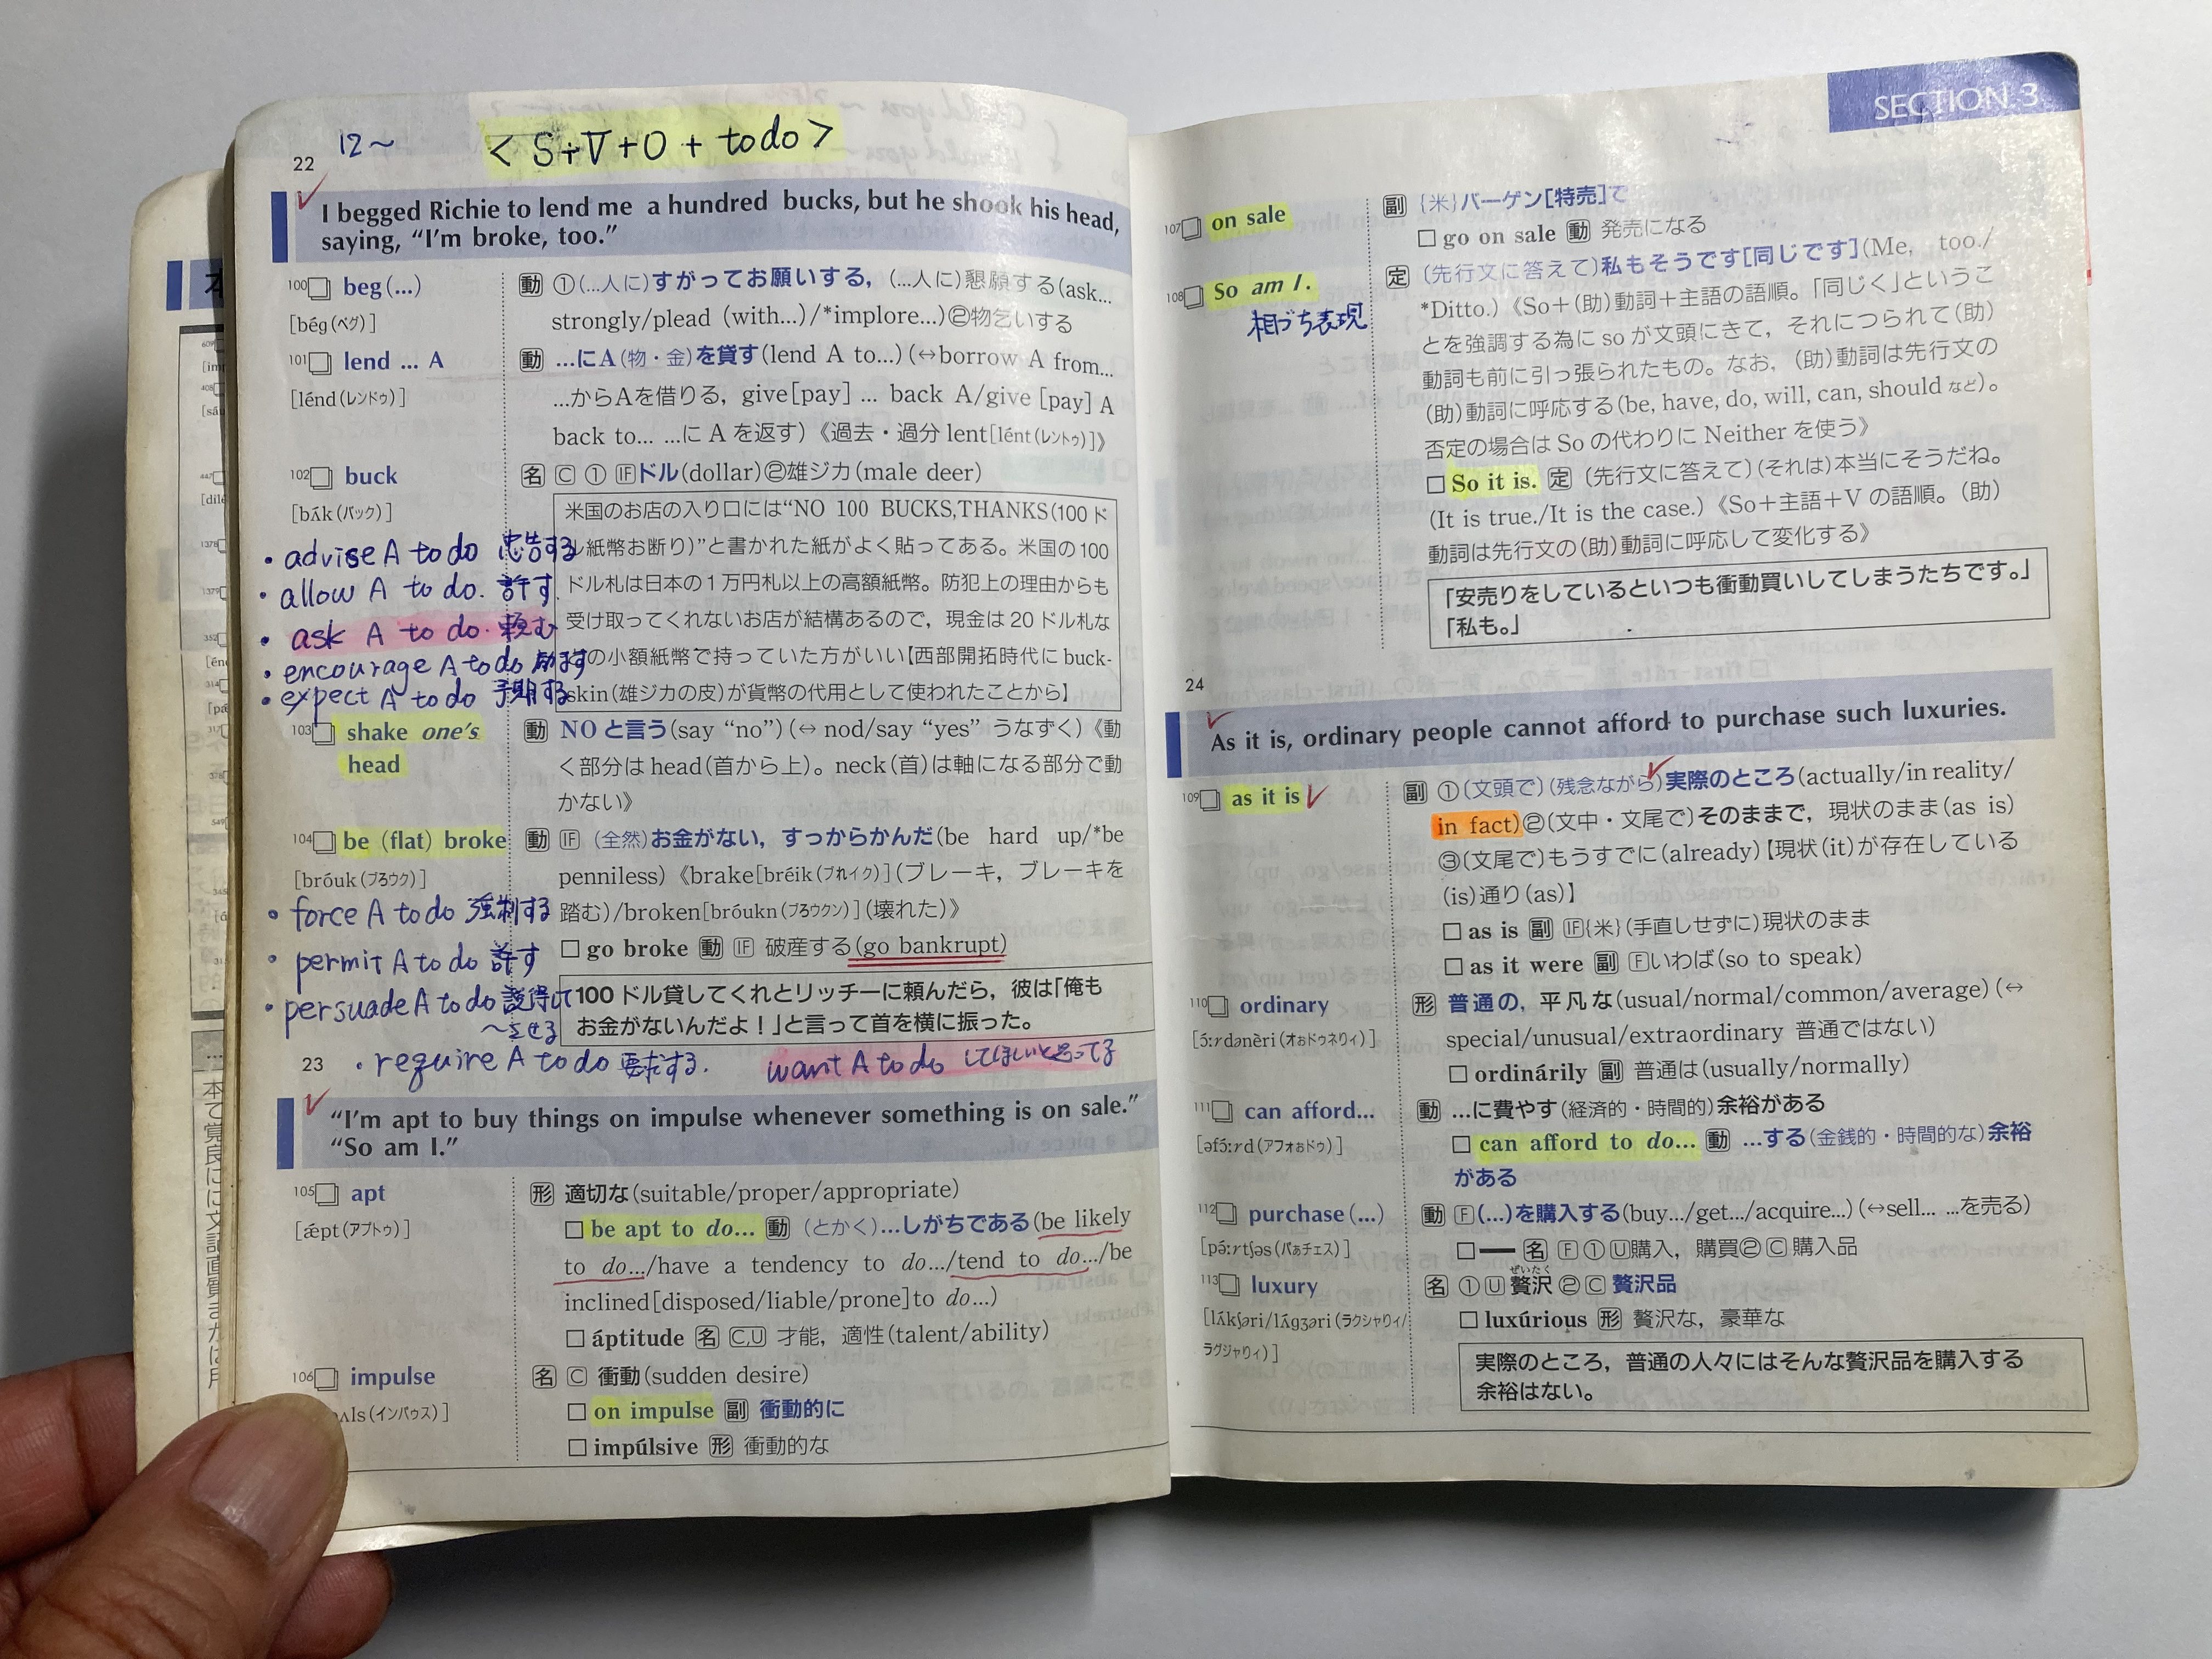 12〜
< S+V+O + to do >
22
I begged Richie to lend me a hundred bucks, but he shook his head,
saying, “I'm broke, too.”
100 beg(...)
[bég(ベグ)]
動 ①(...人に)すがってお願いする, (...人に)懇願する(ask...
strongly/plead (with...)/*implore...)②物乞いする
101 lend ... A
[lénd(レンドゥ)]
動 ...にA(物・金)を貸す(lend A to...)(↔borrow A from...
...からAを借りる, give[pay] ... back A/give [pay] A
back to... ...に A を返す)《過去・過分 lent[lént(レントゥ)]》
102 buck
[bʌ́k(バック)]
名 C ① IFドル(dollar)②雄ジカ(male deer)
米国のお店の入り口には“NO 100 BUCKS,THANKS(100 ド
ル紙幣お断り)”と書かれた紙がよく貼ってある。米国の100
ドル札は日本の1万円札以上の高額紙幣。防犯上の理由からも
受け取ってくれないお店が結構あるので, 現金は 20 ドル札な
の小額紙幣で持っていた方がいい【西部開拓時代に buck-
skin(雄ジカの皮)が貨幣の代用として使われたことから】
・advise A to do 忠告する
・allow A to do. 許す.
・ask A to do. 頼む
・encourage A to do 励ます
・expect A to do 予期する
103 shake one's
head
動 NOと言う(say “no”)(↔ nod/say “yes” うなずく)《動
く部分は head(首から上)。neck(首)は軸になる部分で動
かない》
104 be (flat) broke
[bróuk(ブろウク)]
動 IF (全然)お金がない, すっからかんだ(be hard up/*be
penniless)《brake[bréik(ブれイク)](ブレーキ, ブレーキを
踏む)/broken[bróukn(ブろウクン)](壊れた)》
□ go broke 動 IF 破産する(go bankrupt)
・force A to do 強制する
・permit A to do 許す
・persuade A to do 説得して
〜させる
100 ドル貸してくれとリッチーに頼んだら, 彼は「俺も
お金がないんだよ！」と言って首を横に振った。
・require A to do 要求する.
want A to do してほしいと思ってる
23
“I'm apt to buy things on impulse whenever something is on sale.”
“So am I.”
105 apt
[ǽpt(アプトゥ)]
形 適切な(suitable/proper/appropriate)
□ be apt to do... 動 (とかく)...しがちである(be likely
to do.../have a tendency to do.../tend to do.../be
inclined[disposed/liable/prone]to do...)
□ áptitude 名 C,U 才能, 適性(talent/ability)
106 impulse
ʌls(インパゥス)]
名 C 衝動(sudden desire)
□ on impulse 副 衝動的に
□ impúlsive 形 衝動的な
SECTION 3
107 on sale
副 {米}バーゲン[特売]で
□ go on sale 動 発売になる
108 So am I.
相づち表現
定 (先行文に答えて)私もそうです[同じです](Me, too./
*Ditto.)《So+(助)動詞+主語の語順。「同じく」というこ
とを強調する為に so が文頭にきて, それにつられて(助)
動詞も前に引っ張られたもの。なお, (助)動詞は先行文の
(助)動詞に呼応する(be, have, do, will, can, should など)。
否定の場合は So の代わりに Neither を使う》
□ So it is. 定 (先行文に答えて)(それは)本当にそうだね。
(It is true./It is the case.)《So+主語+V の語順。(助)
動詞は先行文の(助)動詞に呼応して変化する》
「安売りをしているといつも衝動買いしてしまうたちです。」
「私も。」
24
As it is, ordinary people cannot afford to purchase such luxuries.
109 as it is
副 ①(文頭で)(残念ながら)実際のところ(actually/in reality/
in fact)②(文中・文尾で)そのままで, 現状のまま(as is)
③(文尾で)もうすでに(already)【現状(it)が存在している
(is)通り(as)】
□ as is 副 IF{米}(手直しせずに)現状のまま
□ as it were 副 Fいわば(so to speak)
110 ordinary
[ɔ́ːrdənèri(オぉドゥネりィ)]
形 普通の, 平凡な(usual/normal/common/average)(↔
special/unusual/extraordinary 普通ではない)
□ ordinárily 副 普通は(usually/normally)
111 can afford...
[əfɔ́ːrd(アフォぉドゥ)]
動 ...に費やす(経済的・時間的)余裕がある
□ can afford to do... 動 ...する(金銭的・時間的な)余裕
がある
112 purchase(...)
[pə́ːrtʃəs(パぁチェス)]
動 F(...)を購入する(buy.../get.../acquire...)(↔sell... ...を売る)
□ ― 名 F①U購入, 購買②C購入品
113 luxury
[lʌ́kʃəri/lʌ́gʒəri(ラクシャりィ/
ラグジャりィ)]
名 ①U贅沢②C贅沢品
ぜいたく
□ luxúrious 形 贅沢な, 豪華な
実際のところ, 普通の人々にはそんな贅沢品を購入する
余裕はない。